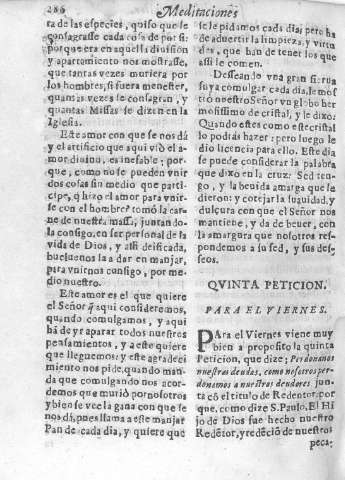 286
Meditaciones
ra de las especies, quiso que se
consagrasse cada cosa de por si:
porque era en aquella diuision
y apartamiento nos mostrasse,
que tantas vezes muriera por
los hombres, si fuera menester,
quantas vezes se consagran, y
quantas Missas se dizen en la
Iglesia.
Este amor con que se nos dá
y el artificio que aqui vsó el a-
mor diuino, es inefable: por-
que, como no se pueden vnir
dos cosas sin medio que parti-
cipe, q̃ hizo el amor para vnir-
se con el hombre? tomó la car-
ne de nuestra massa, juntando-
la consigo, en ser personal de la
vida de Dios, y assi deificada,
bueluenosla a dar en manjar,
para vnirnos consigo, por me-
dio nuestro.
Este amor es el que quiere
el Señor q̃ aqui consideremos,
quando comulgamos, y aqui
há de yr a parar todos nuestros
pensamientos, y a este quiere
que lleguemos: y este agradeci
miento nos pide, quando man-
da que comulgando nos acor-
demos que murió por nosotros
y bien se vee la gana con que se
nos dá, pues llama a este manjar
Pan de cada dia, y quiere que
se le pidamos cada dia: pero ha
de aduertir la limpieza, y virtu
des, que han de tener los que
assi le comen.
Desseando vna gran sierua
suya comulgar cada dia, le mos
tró nuestro Señor vn globo her
mosissimo de cristal, y le dixo:
Quando estes como este cristal
lo podrás hazer: pero luego le
dio licencia para ello. Este dia
se puede considerar la palabra
que dixo en la cruz: Sed ten-
go, y la beuida amarga que le
dieron: y cotejar la suauidad, y
dulçura con que el Señor nos
mantiene, y da de beuer, con
la amargura que nosotros res-
pondemos a su sed, y sus des-
seos.
QVINTA PETICION.
PARA EL VIERNES.
PAra el Viernes viene muy
bien a proposito la quinta
Peticion, que dize; Perdonanos
nuestras deudas, como nosotros per-
donamos a nuestros deudores: jun-
ta cõ el titulo de Redentor: por
que, como dize S. Paulo, El Hi
jo de Dios fue hecho nuestro
Redẽtor, y redẽciõ de nuestros
peca-